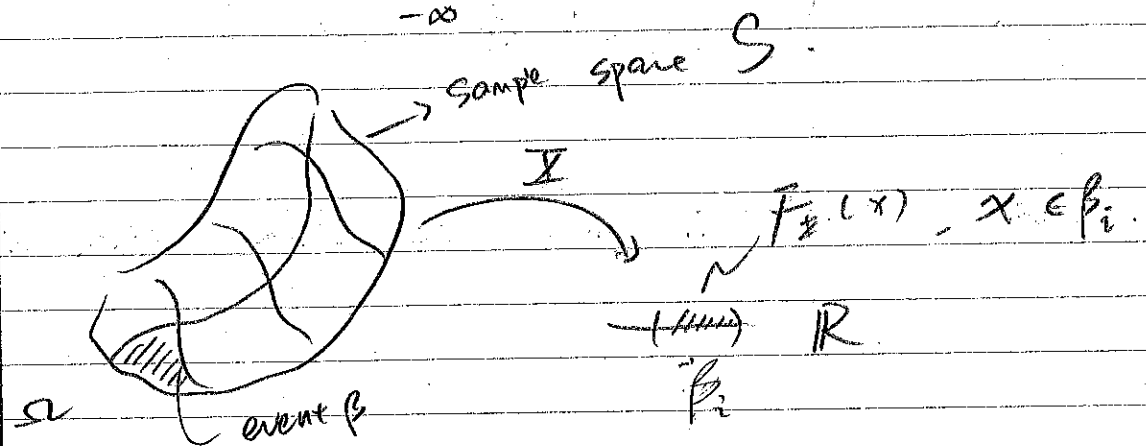 -∞
sample space S.
X
F_X(x), x ∈ β_i.
ℝ
β_i
Ω
event β